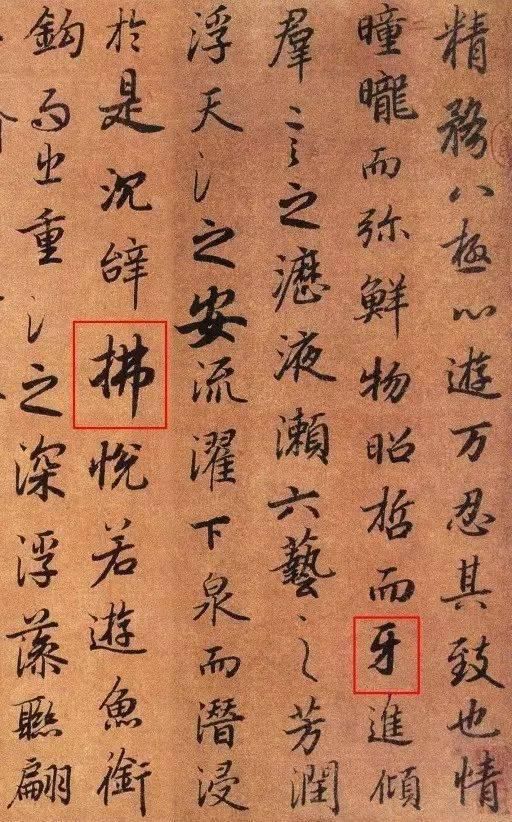 精務八極心遊万忍其致也情
曈曨而弥鮮物昭哲而牙進傾
羣言之瀝液瀨六藝之芳潤
浮天之安流濯下泉而潛浸
於是沉辝拂悅若遊魚銜
鈎而出重之深浮藻聮翩